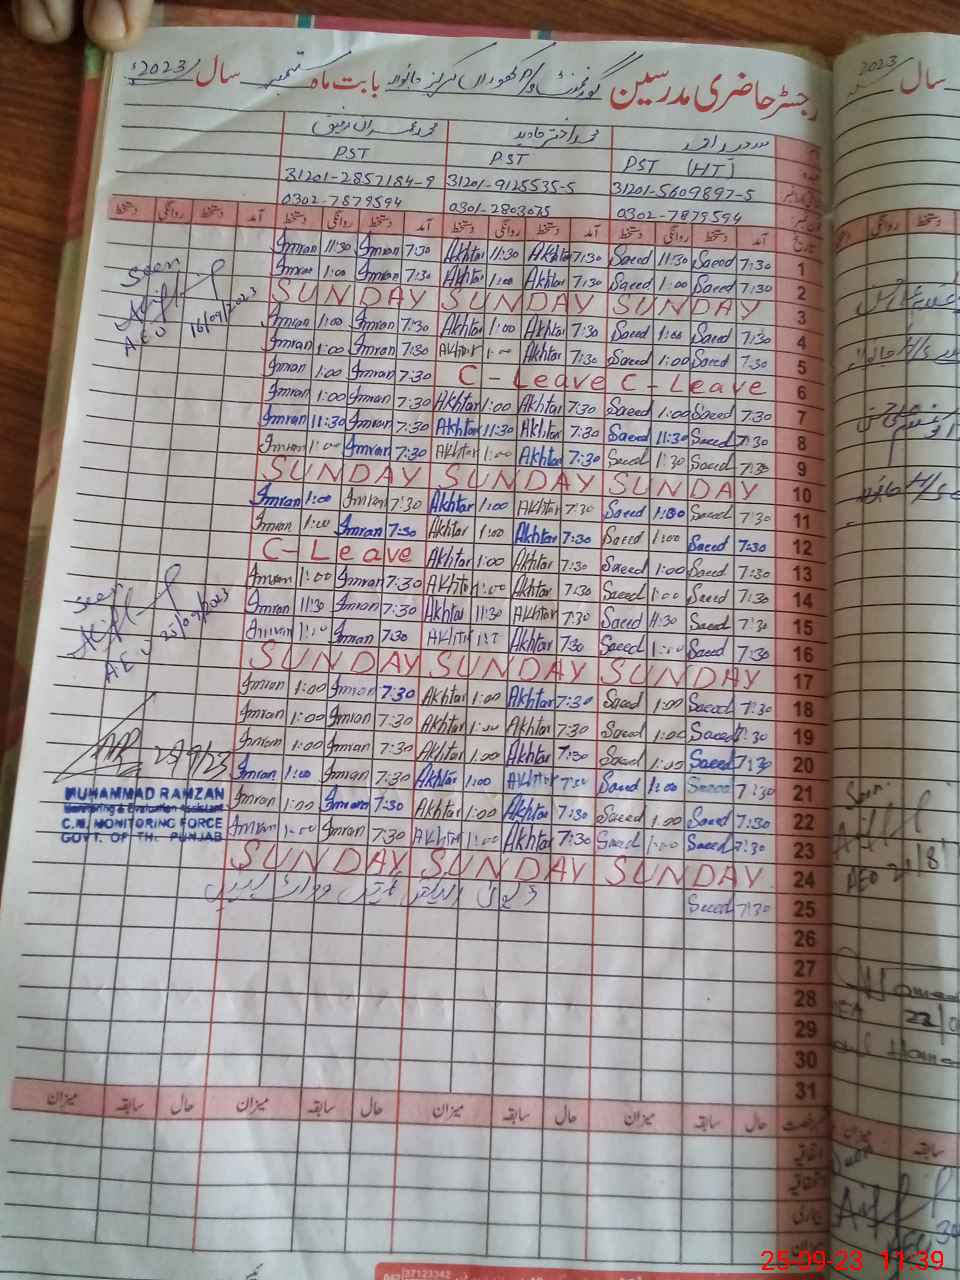 رجسٹر حاضری مدرسین گورنمنٹ بابت ماہ ستمبر سال 2023ء
سعید احمد محمد اختر جاوید محمد عمران رفیق
PST (HT) PST PST
31201-5609897-5 31201-9125535-5 31201-2857184-9
0302-7879594 0301-2803075 0302-7879594
تاریخ آمد دستخط روانگی دستخط آمد دستخط روانگی دستخط آمد دستخط روانگی دستخط آمد دستخط روانگی دستخط
1 7:30 Saeed 11:30 Saeed 7:30 Akhtar 11:30 Akhtar 7:30 Imran 11:30 Imran
2 7:30 Saeed 1:00 Saeed 7:30 Akhtar 1:00 Akhtar 7:30 Imran 1:00 Imran
3 SUNDAY SUNDAY SUNDAY
4 7:30 Saeed 1:00 Saeed 7:30 Akhtar 1:00 Akhtar 7:30 Imran 1:00 Imran
5 7:30 Saeed 1:00 Saeed 7:30 Akhtar 1:00 Akhtar 7:30 Imran 1:00 Imran
6 C-Leave C-Leave 7:30 Imran 1:00 Imran
7 7:30 Saeed 1:00 Saeed 7:30 Akhtar 1:00 Akhtar 7:30 Imran 1:00 Imran
8 7:30 Saeed 11:30 Saeed 7:30 Akhtar 11:30 Akhtar 7:30 Imran 11:30 Imran
9 7:30 Saeed 1:30 Saeed 7:30 Akhtar 1:00 Akhtar 7:30 Imran 1:00 Imran
10 SUNDAY SUNDAY SUNDAY
11 7:30 Saeed 1:00 Saeed 7:30 Akhtar 1:00 Akhtar 7:30 Imran 1:00 Imran
12 7:30 Saeed 1:00 Saeed 7:30 Akhtar 1:00 Akhtar 7:30 Imran 1:00 Imran
13 7:30 Saeed 1:00 Saeed 7:30 Akhtar 1:00 Akhtar C-Leave
14 7:30 Saeed 1:00 Saeed 7:30 Akhtar 1:00 Akhtar 7:30 Imran 1:00 Imran
15 7:30 Saeed 11:30 Saeed 7:30 Akhtar 11:30 Akhtar 7:30 Imran 11:30 Imran
16 7:30 Saeed 1:00 Saeed 7:30 Akhtar Akhtar 7:30 Imran 1:00 Imran
17 SUNDAY SUNDAY SUNDAY
18 7:30 Saeed 1:00 Saeed 7:30 Akhtar 1:00 Akhtar 7:30 Imran 1:00 Imran
19 7:30 Saeed 1:00 Saeed 7:30 Akhtar 1:00 Akhtar 7:30 Imran 1:00 Imran
20 7:30 Saeed 1:00 Saeed 7:30 Akhtar 1:00 Akhtar 7:30 Imran 1:00 Imran
21 7:30 Saeed 1:00 Saeed 7:30 Akhtar 1:00 Akhtar 7:30 Imran 1:00 Imran
22 7:30 Saeed 1:00 Saeed 7:30 Akhtar 1:00 Akhtar 7:30 Imran 1:00 Imran
23 7:30 Saeed 1:00 Saeed 7:30 Akhtar 1:00 Akhtar 7:30 Imran 1:00 Imran
24 SUNDAY SUNDAY SUNDAY
25 7:30 Saeed
26
27
28
29
30
31
حال سابقہ میزان حال سابقہ میزان حال سابقہ میزان حال سابقہ میزان
اتفاقیہ
استحقاقیہ
بیماری
میزان
Seen
AEO 16/09/2023
Seen
AEO 25/09/2023
25/9/23
MUHAMMAD RAMZAN
Monitoring & Evaluation Assistant
C.M. MONITORING FORCE
GOVT. OF TH. PUNJAB
سال 2023
Seen
AEO 21/8
22/0
سابقہ میزان
37123342
25-09-23 11:39